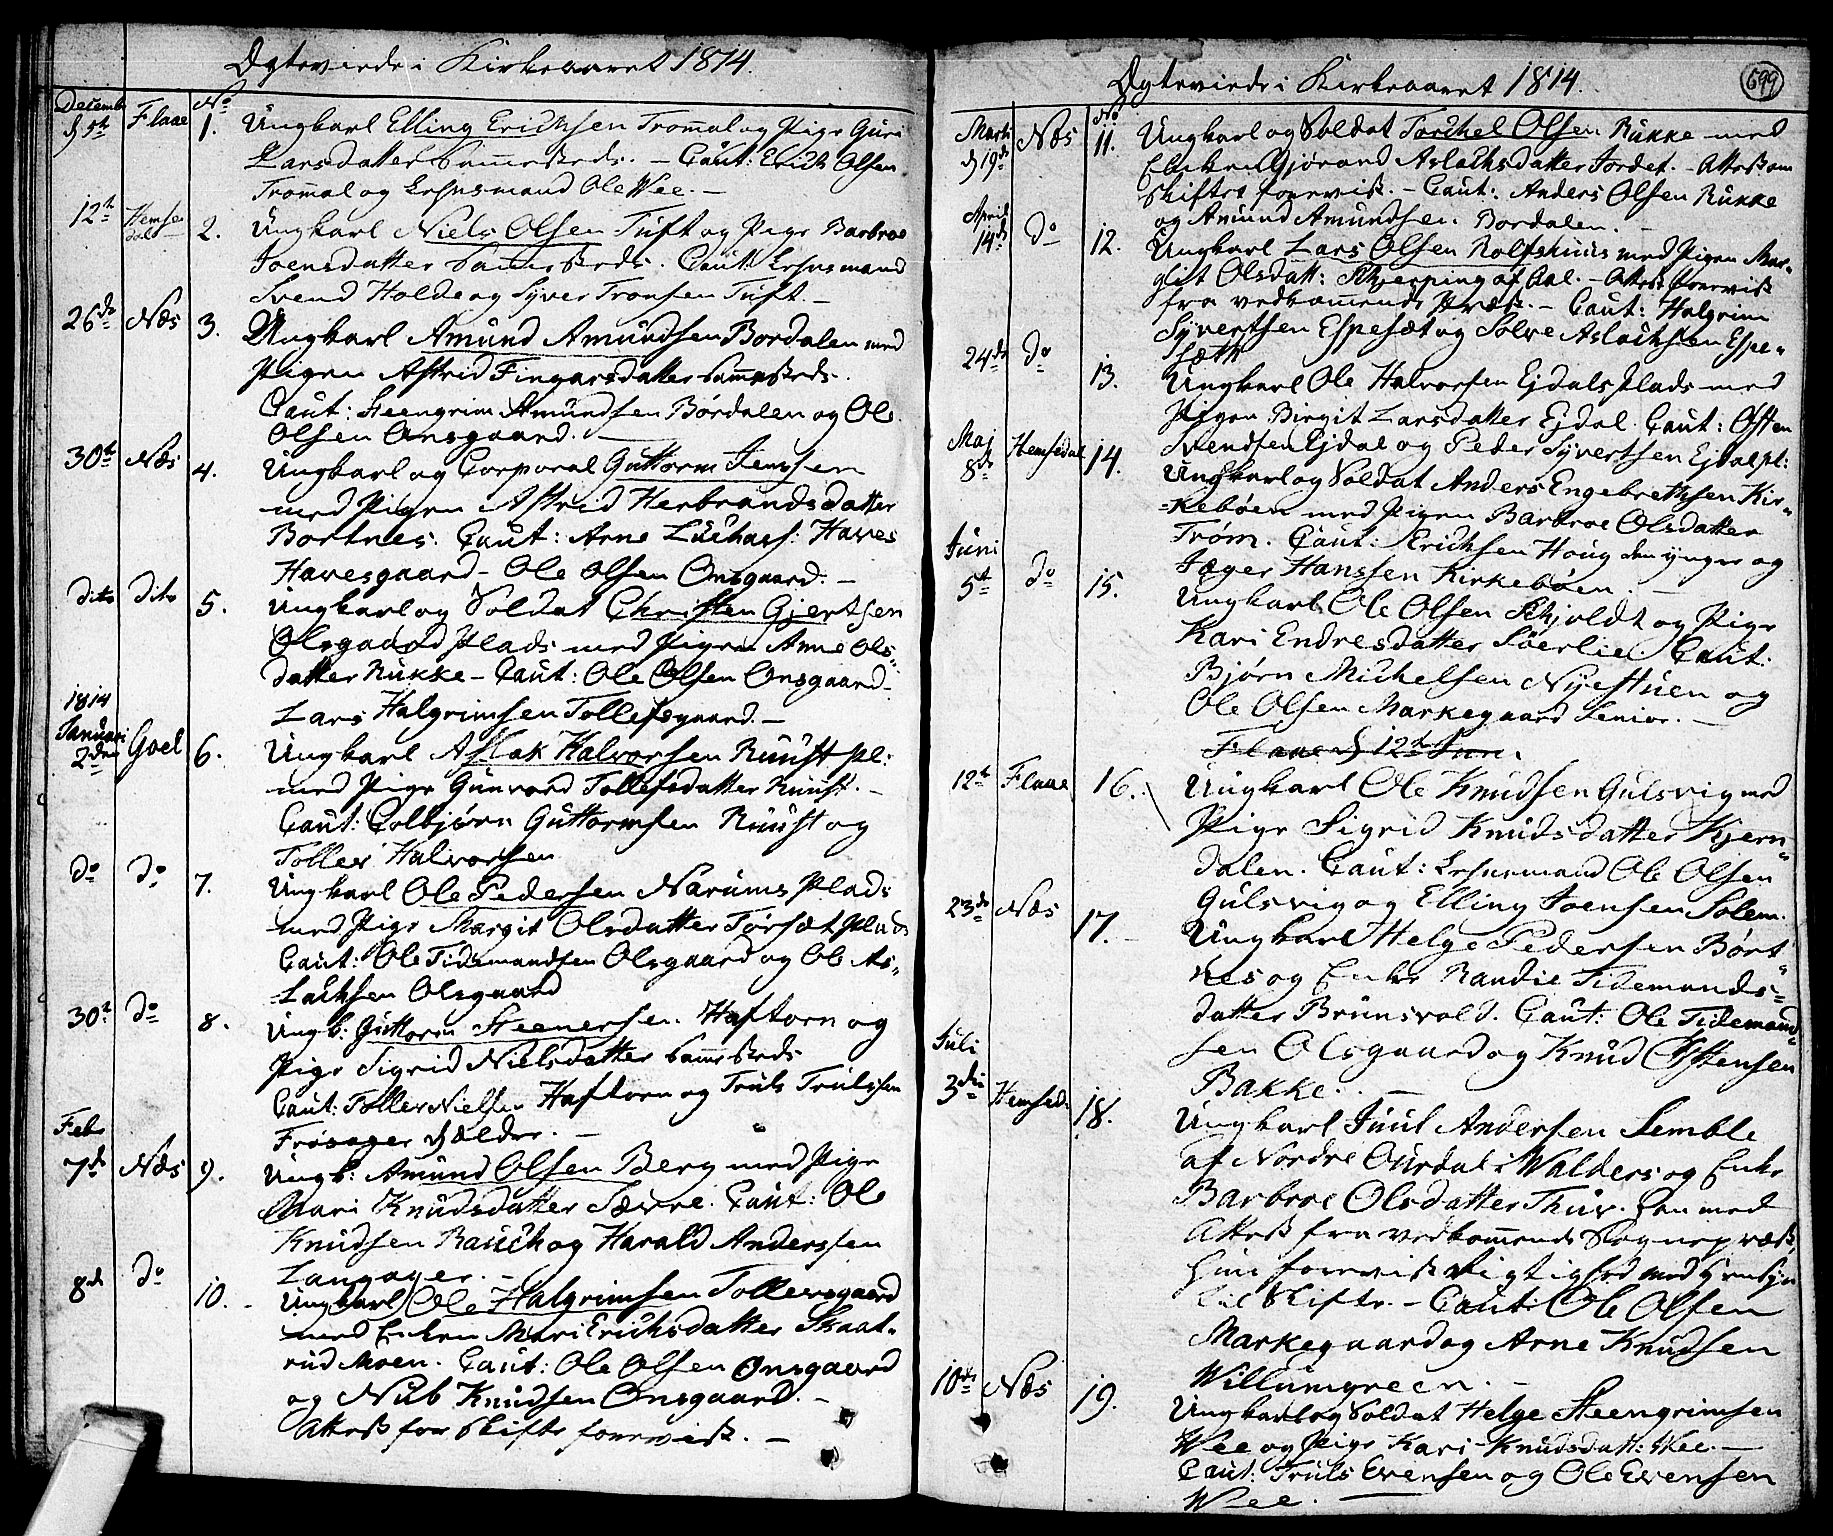 Ægteviede i Kirkeaaret 1814.
Decemb: d 5te Flaae No 1. Ungkarl Elling Erichsen Trommal og Pige Guri
Larsdatter sammesteds. – Caut: Erich Olsen
Trommal og Lehnsmand Ole Wee. –
12te Hemsedal 2. Ungkarl Niels Olsen Tuft og Pige Barbroe
Joensdatter sammesteds. Caut: Lehnsmand
Svend Holde og Syver Tronsen Tuft. –
26de Næs 3. Ungkarl Amund Amundsen Bordalen med
Pigen Astrid Fingarsdatter sammesteds.
Caut: Steengrim Amundsen Børdalen og Ole
Olsen Onsgaard. –
30te Næs 4. Ungkarl og Corporal Guttorm Jenssen
med Pigen Astrid Herbrandsdatter
Bortnes. Caut: Arne Haves
Havesgaard – Ole Olsen Onsgaard. –
dito dito 5. Ungkarl og Soldat Christen Gjertsen
Olsgaard Plads med Pigen Anne Ols-
datter Rukke – Caut: Ole Olsen Onsgaard –
Lars Halgrimsen Tollefsgaard. –
1814 Januari 2den Goel 6. Ungkarl Aslak Halvorsen Ruust pl:
med Pige Gunvord Tollefsdatter Ruust. –
Caut: Colbjørn Guttormsen Ruust og
Tollev Halvorsen
do do 7. Ungkarl Ole Pedersen Narums Plads
med Pige Margit Olsdatter Torset Plads
Caut: Ole Tidemandsen Olsgaard og Ole As-
-lachsen Olsgaard
30te do 8. Ungk: Guttorm Steenersen Haftorn og
Pige Sigrid Nielsdatter sammesteds
Caut: Tollev Nielsen Haftorn og Truls Trulssen
Frøsager d ældre. –
Febr 7de Næs 9. Ungk: Amund Olsen Berg med Pige
Mari Knudsdatter Sævre. Caut: Ole
Knudsen Rauch og Harald Anderssen
Langager. –
8de do 10. Ungkarl Ole Halgrimsen Tollevsgaard
med Enken Mari Erichsdatter Skaat-
rud Moen. Caut: Ole Olsen Onsgaard
og Nub Knudsen Onsgaard. –
Attest for Skifte foreviist. –
Ægteviede i Kirkeaaret 1814. 699
Marti d 19de Næs No 11. Ungkarl og Soldat Torchel Olsen Rukke med
Enken Gjørand Aslachsdatter Jordet. – Attest om
Skifte foreviist. – Caut: Anders Olsen Rukke
og Amund Amundsen Bordalen. –
April 14de do 12. Ungkarl Lars Olsen Rolfshuus med Pigen Mar-
git Olsdatt: Skjerping af Aal. – Attest foreviist
fra vedkommende Præst. – Caut: Halgrim
Syvertsen Espesæt og Solve Aslachsen Espe-
sæth
24de do 13. Ungkarl Ole Halvorsen Ejdals Plads med
Pigen Birgit Larsdatter Ejdal. Caut: Østen
Svendsen Ejdal og Peder Syvertsen Ejdal pl:
Maj 8de Hemsedal 14. Ungkarl og Soldat Anders Engebrethsen Kir-
-kebøen med Pigen Barbroe Olsdatter
Trøm. Caut: Erichsen Houg den yngre og
Jæger Hanssen Kirkebøen. –
Juni 5te do 15. Ungkarl Ole Olsen Skjoldt og Pige
Kari Endresdatter Søerlie. Caut:
Bjørn Michelsen Nyestuen og
Ole Olsen Markegaard Senior. –
Flaae d 12te Jun.
12te Flaae 16. Ungkarl Ole Knudsen Gulsvig med
Pige Sigrid Knudsdatter Kjern-
dalen. Caut: Lehnsmand Ole Olsen
Gulsvig og Elling Joensen Solem.
23de Næs 17. – Ungkarl Helge Pedersen Børt-
nes og Enke Randie Tidemands-
datter Brunsvold. Caut: Ole Tidemand-
sen Olsgaard og Knud Østensen
Bakke. –
Juli 3die Hemsed: 18. Ungkarl Juul Andersen Semble
af Nordre Ourdal i Walders og Enke
Barbroe Olsdatter Thuv. Han med
Attest fra vedkommende Sognepræst,
Hun foreviist Rigtighed med Hensyn
til Skifte. – Caut: Ole Olsen
Markegaard og Arne Knudsen
Willumgreen. –
10de Næs 19. Ungkarl og Soldat Helge Steengrimsen
Wee og Pige Kari Knudsdatt: Wee. –
Caut: Truls Evensen og Ole Evensen
Wee. –